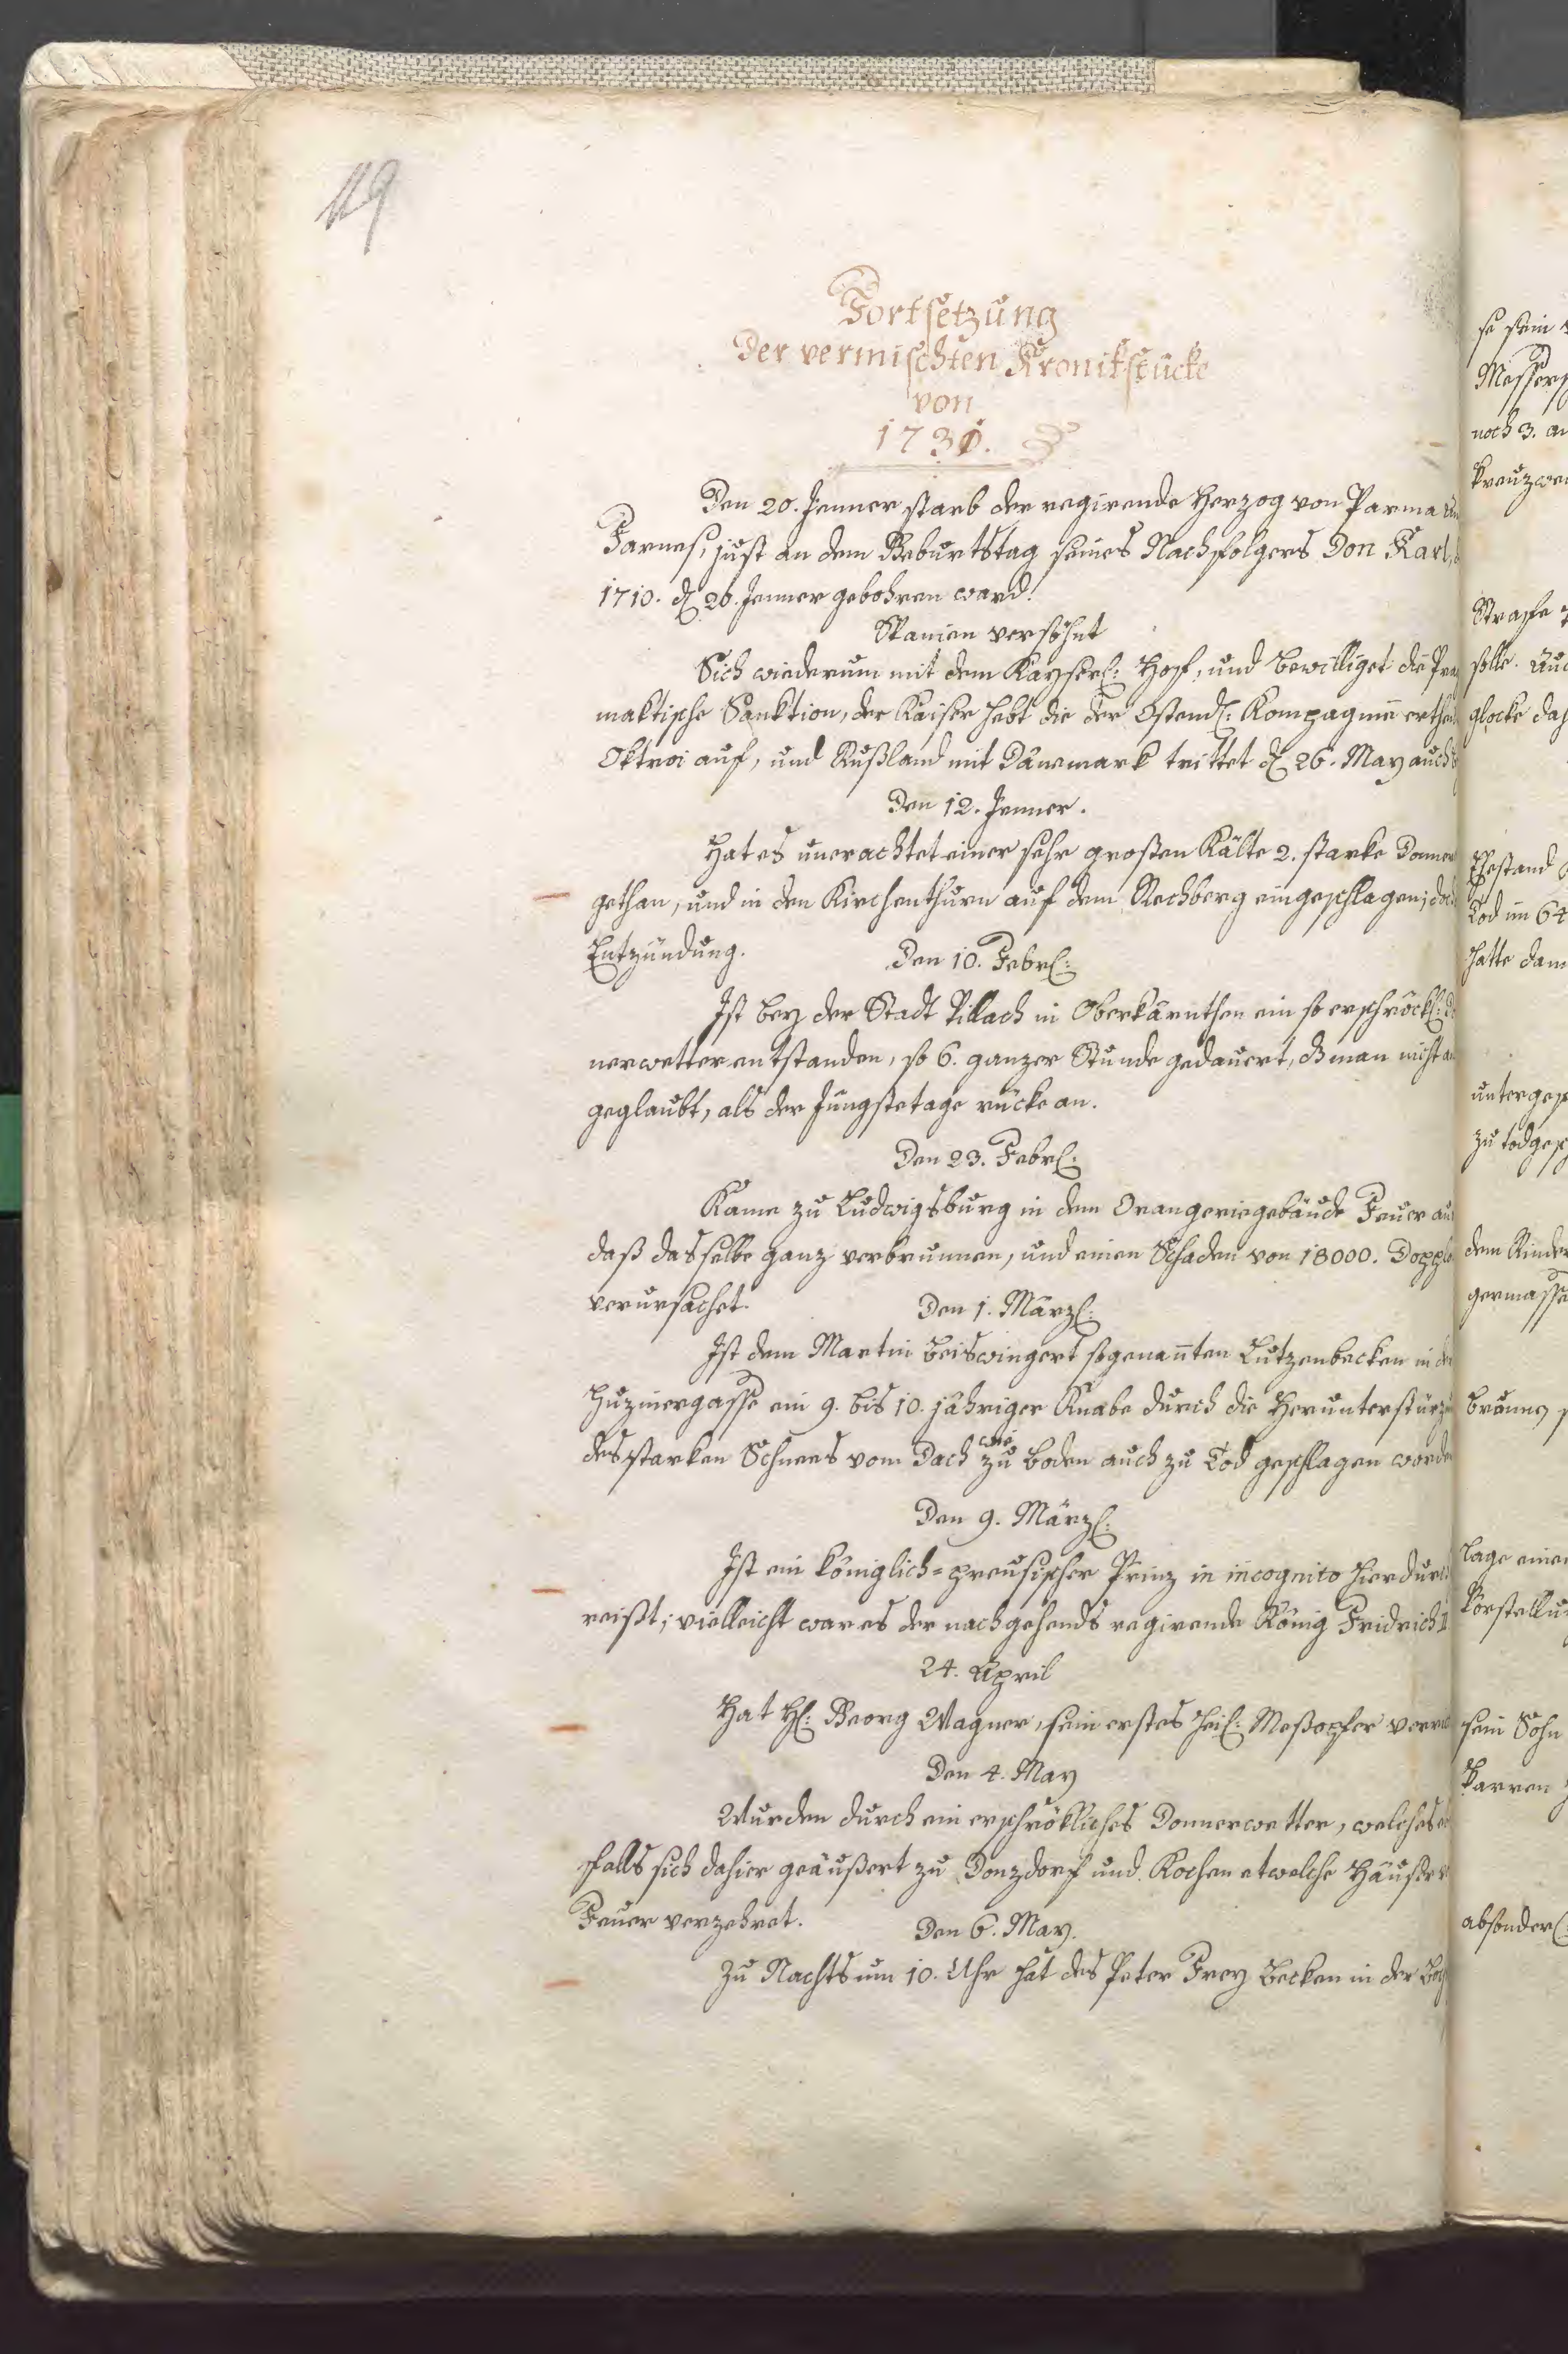 119
Fortsetzung
der vermischten Kronikstücke
von
1731.
Den 20. Jenner starb der regirende Herzog von Parma
Farnes, just an dem Geburtstag seines Nachfolgers Don Karl,
1710. den 20. Jenner gebohren ward.
Spanien versöhnt
Sich wiederum mit dem Kayserl: Hof, und bewilliget die Prag
maktische Sanktion, der Kaiser hebt die der Ostend: Kompagnie erthei
Oktroi auf, und Rußland mit Dänemark trittet den 26. May auch
Den 12. Jenner.
Hat es unerachtet einer sehr großen Kälte 2. starke Donner
gethan, und in den Kirchenthurn auf dem Rechberg eingeschlagen; doch
Entzündung.
Den 10. Febr:
Ist bey der Stadt Villach in Oberkärnthen ein so erschröckl: Do
nerwetter entstanden, so 6. ganzer Stunde gedauert, daß man nicht an
geglaubt, als der Jüngstetage rücke an.
Den 23. Febr:
Kame zu Ludwigsburg in dem Orangeriegebäude Feuer aus
daß dasselbe ganz verbrunnen, und einen Schaden von 18000. Dopple
verursachet.
Den 1. März:
Ist dem Martin Beiswingert sogenannten Lutzenbecken in der
Huzinergasse ein 9. bis 10. jähriger Knabe durch die Herunterstürzu
des starken Schnees vom Dach wie zu Boden auch zu Tod geschlagen worde
Den 9. März:
Ist ein königlich-preusischer Prinz in incognito hierdurch
reißt; vielleicht war es der nachgehends regirende König Fridrich II
24. April
Hat H: Georg Wagner, sein erstes heil: Meßopfer verric
Den 4. May
Wurden durch ein erschrökliches Donnerwetter, welches e
falls sich dahier geäußert zu Donzdorf und Kochen etwelche Häuser
Feuer verzehret.
Den 6. May.
Zu Nachts um 10. Uhr hat des Peter Frey Becken in der
se sein
Messer
noch 3. an
Kreuzwe
Strafe
solle. Auc
glocke dah
Ehestand
Tod im 64
hatte dam
untergesch
zu todgesch
dem Kinder
germasse
Lage einer
Vorstellu
sein Sohn
Karren
absonder